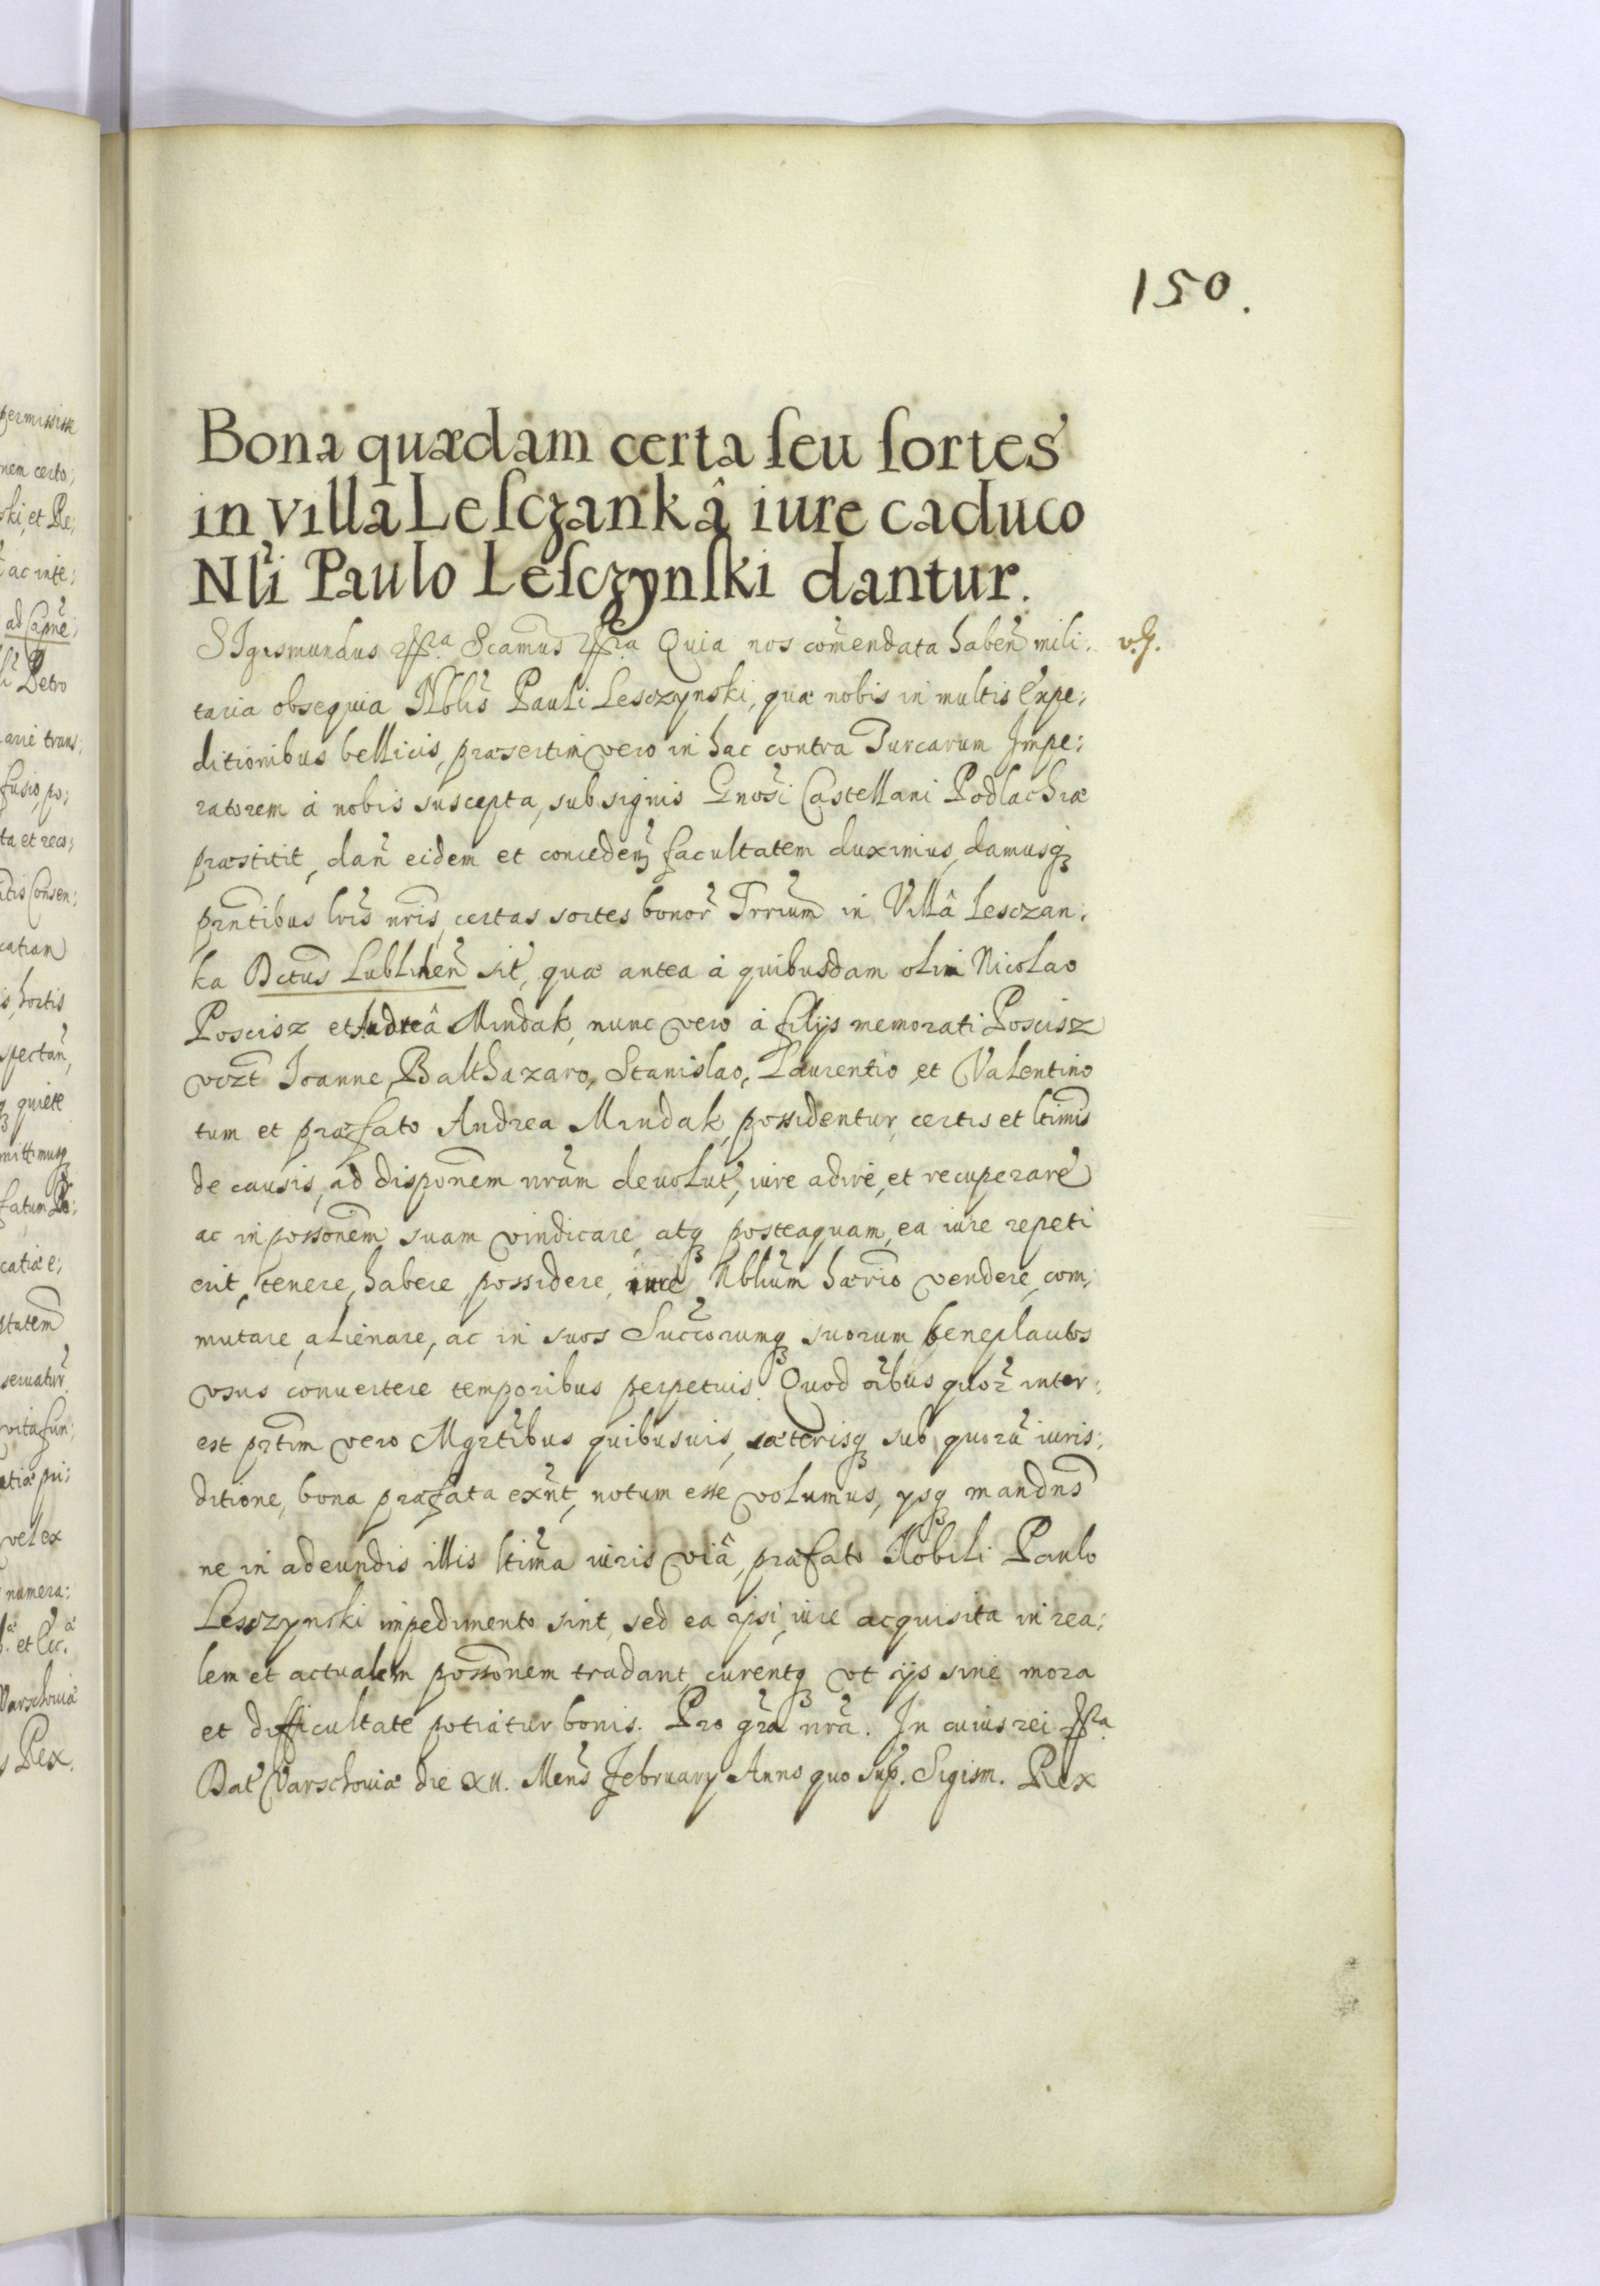 150.
Bona quædam certa seu sortes
in villa Lesczankâ iure caduco
Nli Paulo Lesczynski dantur.
SIgismundus Scamus Quia nos comendata haben mili:
taria obsequia Nblis Pauli Lesczynski, quæ nobis in multis Expe:
ditionibus bellicis, præsertim vero in hac contra Turcarum Impe:
ratorem à nobis suscepta, sub signis Gnosi Castellani Podlachiæ
præstitit, dan eidem et conceden facultatem duximus, damusq
prntibus lris nris, certas sortes bonor Trrium in Villâ Lesczan:
ka Dctus Lublinen sit, quæ antea à quibusdam olim Nicolao
Poscisz et Andreâ Mindak, nunc vero à filijs memorati Poscisz
vczt Ioanne, Balthazaro, Stanislao, Laurentio, et Valentino
tum et præfato Andrea Mindak, possidentur, certis et ltimis
de causis, ad disponem nram deuolut, iure adire, et recuperare
ac in possonem suam vindicare, atq posteaquam, ea iure repeti
erit, tenere, habere, possidere, iure Nblium hærio vendere, com:
mutare, alienare, ac in suos Succorumq suorum beneplacitos
vsus conuertere temporibus perpetuis. Quod oibus quor inter:
est prtim vero Mgrtibus quibusuis, cæterisq sub quorū iuris:
ditione, bona præfata exnt, notum esse volumus, ysq mandns
ne in adeundis illis ltima iuris viâ, præfato Nobili Paulo
Lesczynski impedimento sint, sed ea ipsi, iure acquisita in rea:
lem et actualem possonem tradant, curentq vt ijs sine mora
et difficultate potiatur bonis. Pro gra nra. In cuius rei
Dat Varschouiæ die XII. Mens February Anno quo sup. Sigism. Rex